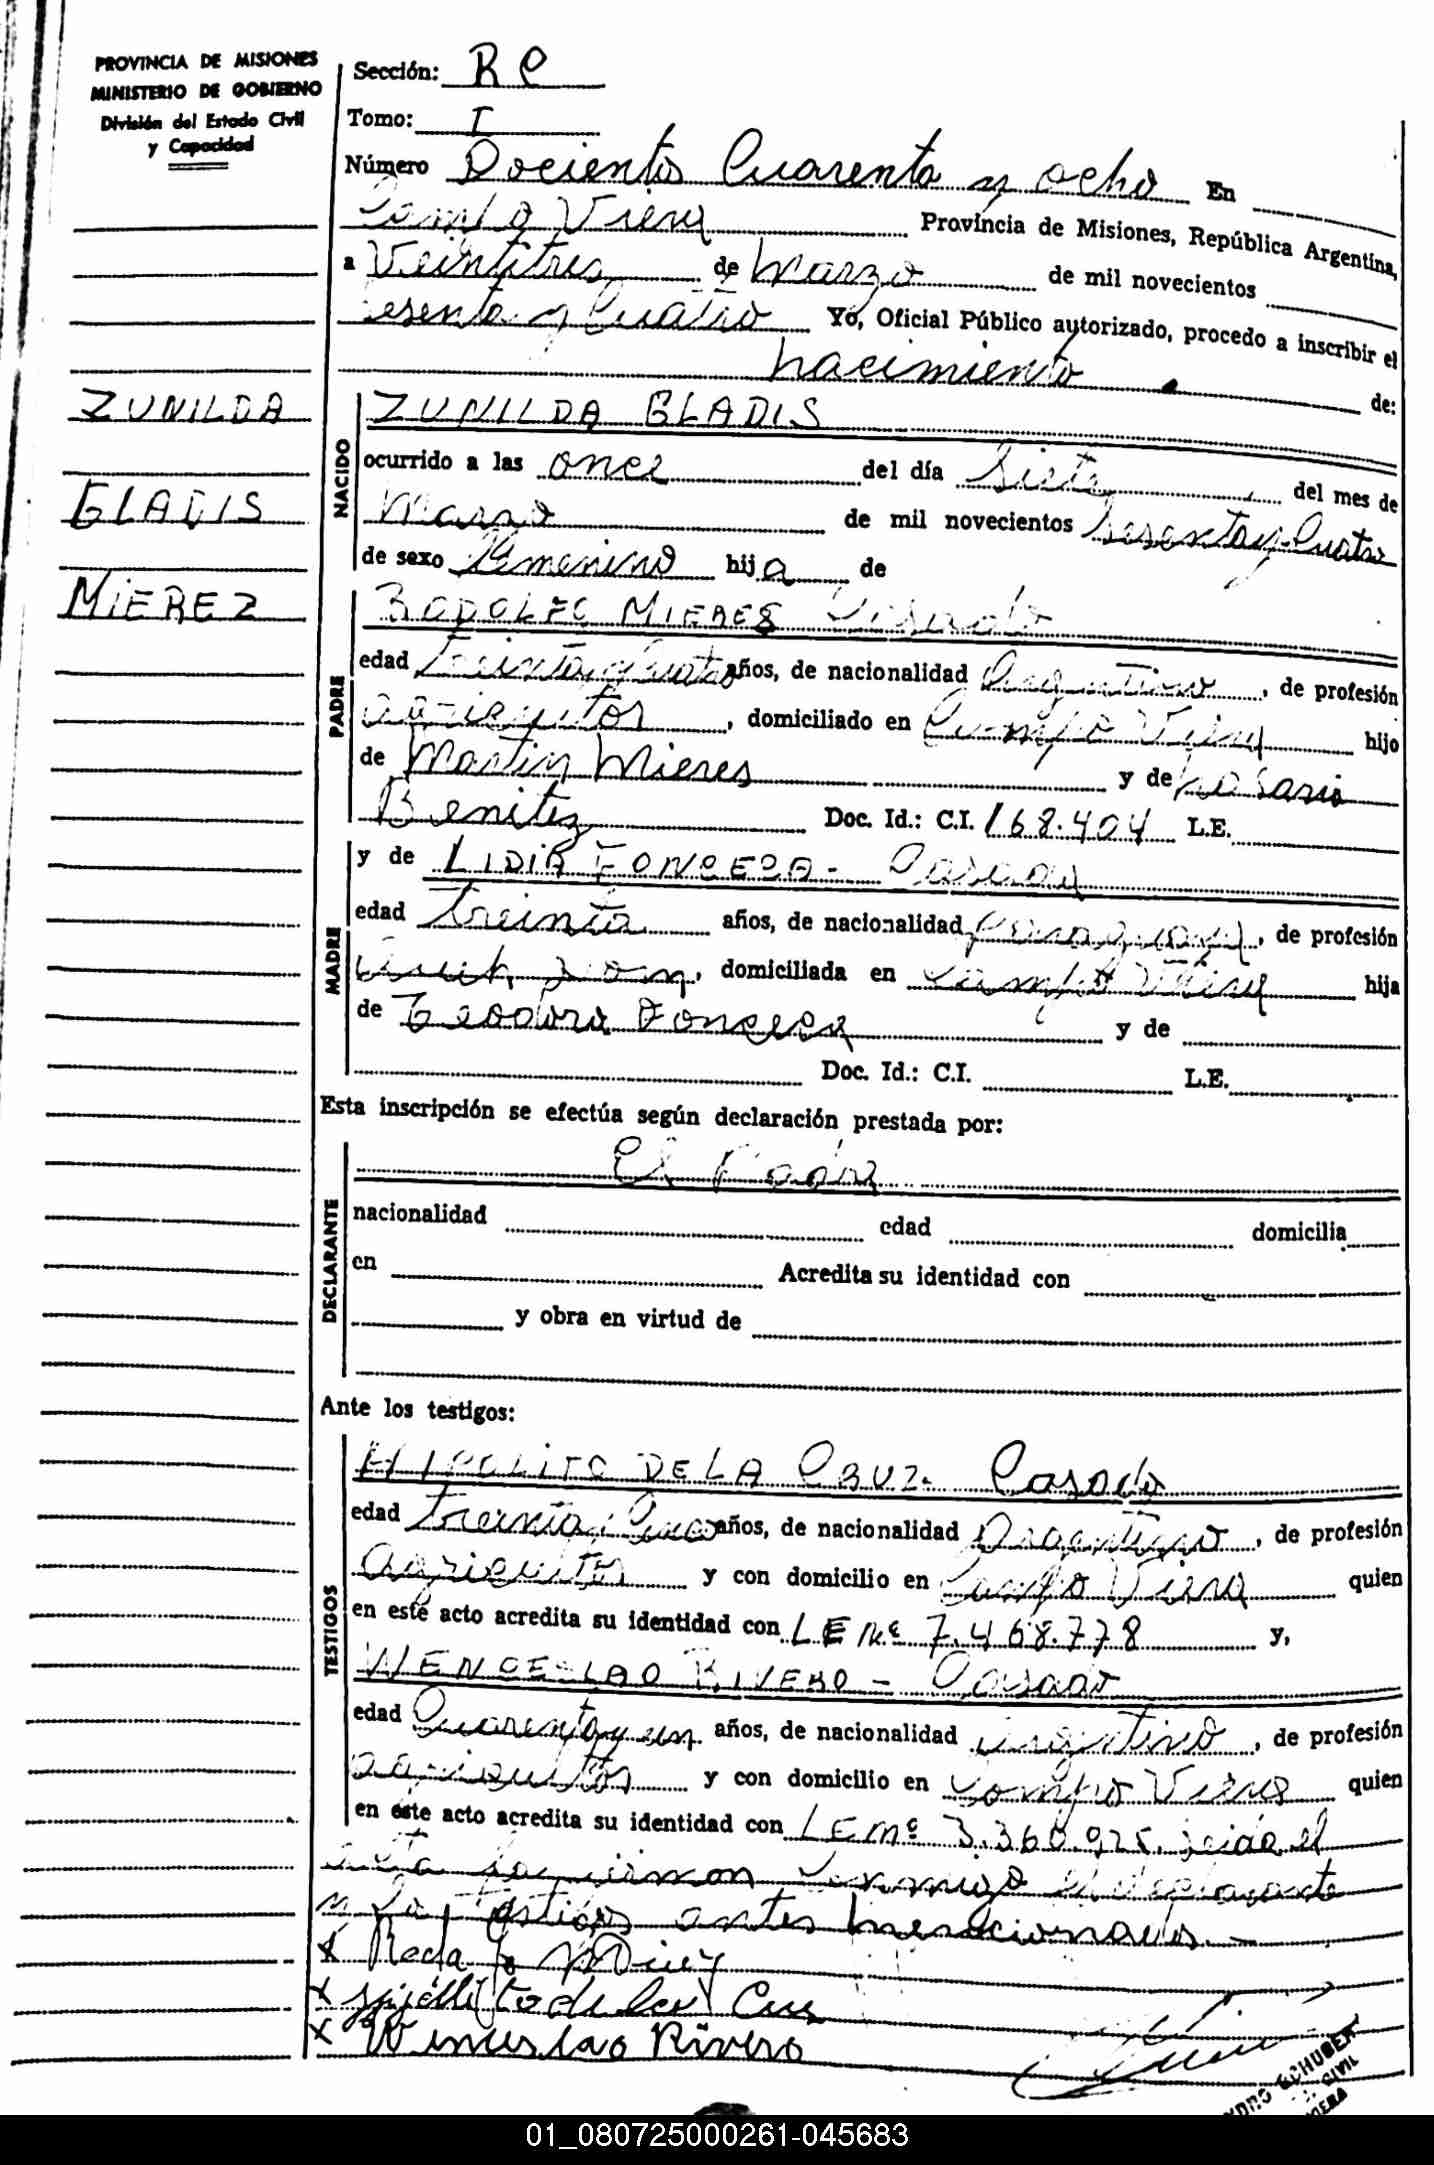 PROVINCIA DE MISIONES
MINISTERIO DE GOBIERNO
División del Estado Civil
y Capacidad
Sección: R C
Tomo: I
Número Dociento Cuarenta y ocho En
Campo Viera Provincia de Misiones, República Argentina,
a Veintitres de Marzo de mil novecientos
sesenta y Cuatro Yo, Oficial Público autorizado, procedo a inscribir el
nacimiento de:
ZUNILDA
GLADIS
MIEREZ
NACIDO
ZUNILDA GLADIS
ocurrido a las once del día Siete del mes de
Marzo de mil novecientos Sesenta y Cuatro
de sexo Femenino hija de
PADRE
RODOLFO MIERES
edad treinta y Cuatro años, de nacionalidad Argentino, de profesión
agricultor, domiciliado en Campo Viera hijo
de Martin Mieres y de Rosario
Benitez Doc. Id.: C.I. 168.404 L.E.
MADRE
y de LIDIA FONCECA -
edad treinta años, de nacionalidad Paraguaya, de profesión
domiciliada en Campo Viera hija
de Teodora Fonceca y de
Doc. Id.: C.I. L.E.
Esta inscripción se efectúa según declaración prestada por:
DECLARANTE
El Padre
nacionalidad edad domicilia
en Acredita su identidad con
y obra en virtud de
Ante los testigos:
TESTIGOS
HIPOLITO DE LA CRUZ. Casado
edad treinta y años, de nacionalidad Argentino, de profesión
agricultor y con domicilio en Campo Viera quien
en este acto acredita su identidad con LE Nº 7.468.778 y,
WENCESLAO RIVERO - Casado
edad Cuarenta y un años, de nacionalidad argentino, de profesión
agricultor y con domicilio en Campo Viera quien
en este acto acredita su identidad con LE Nº 3.360.925. Leida el
acta la firman conmigo el declarante
y los testigos antes mencionados. -
x
x de la Cruz
x Wenceslao Rivero
SCHUBER
CIVIL
01_080725000261-045683